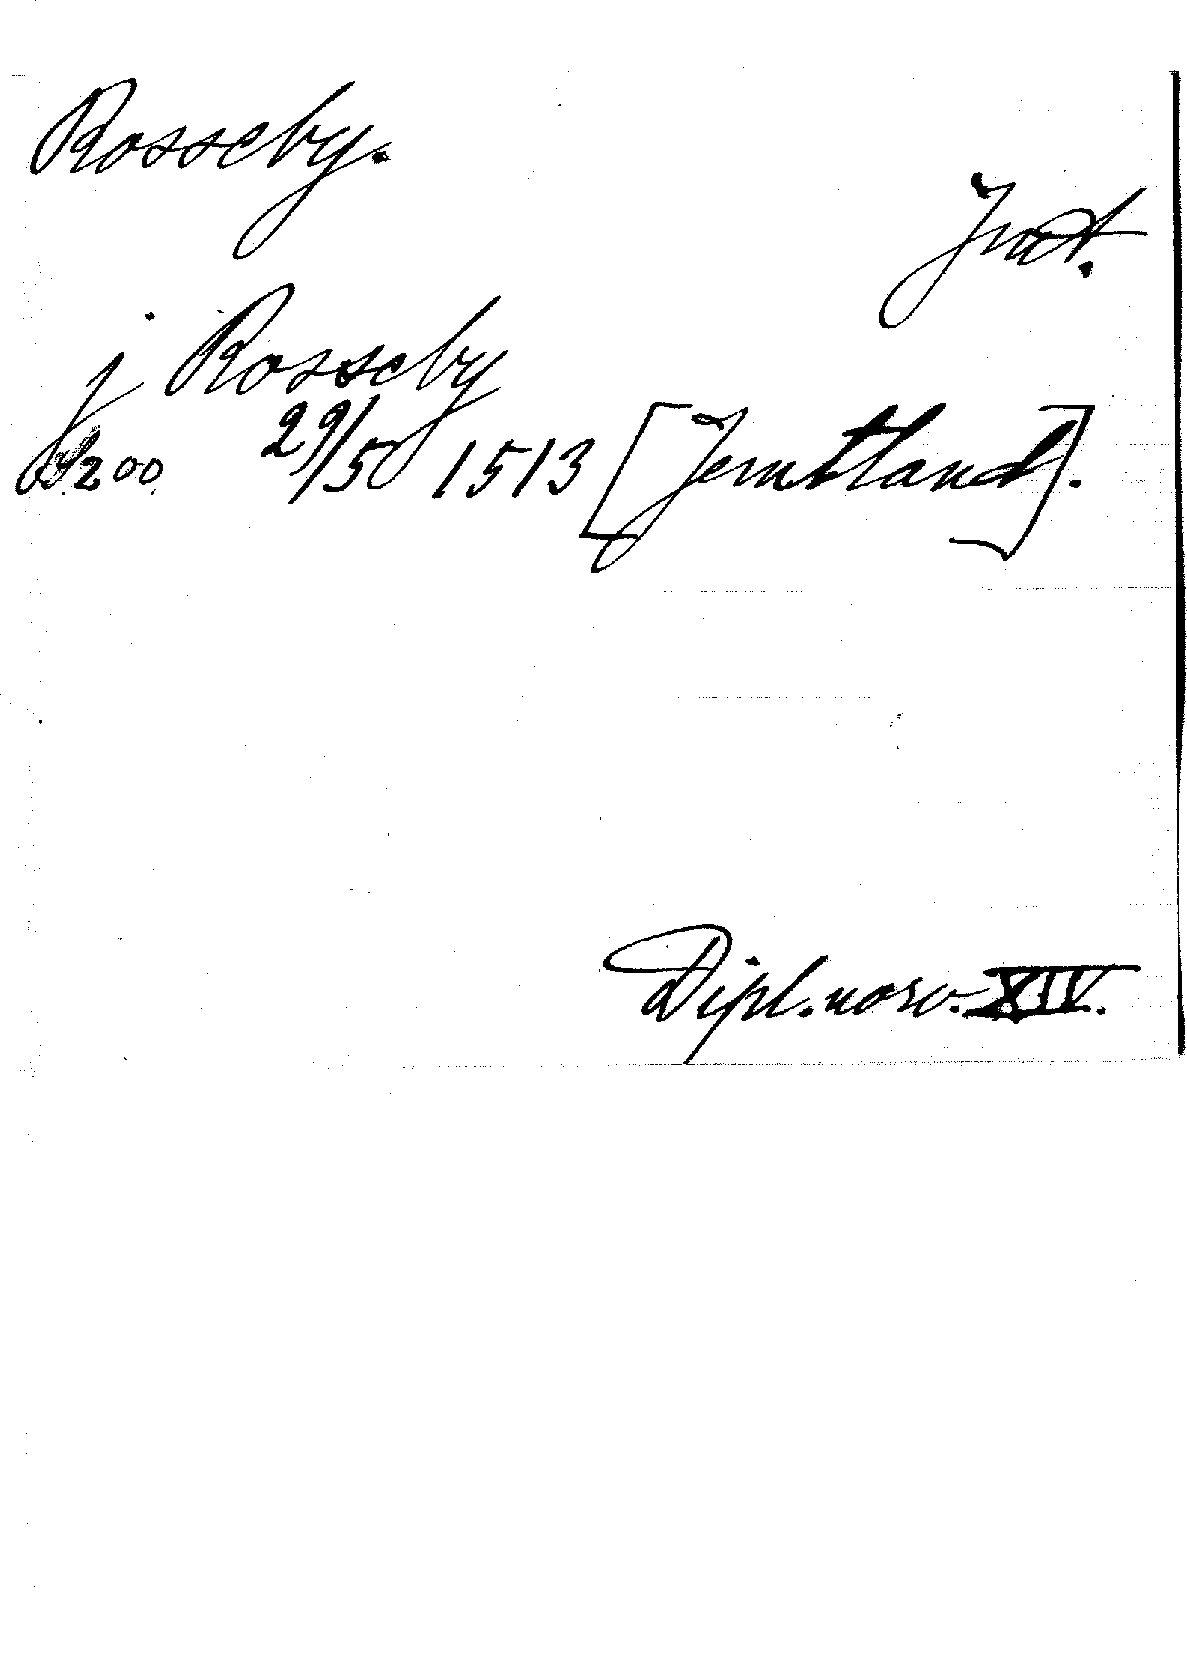 Rosseby.
Jmt.
j Rosseby
S. 200. 29/5 1513 [Jemtland].
Dipl. norv. XIV.